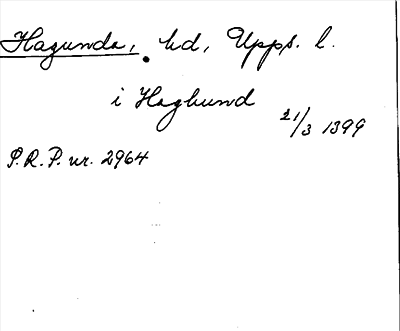 Hagunda, hd, Upps. l.
i Haghund
21/3 1399
S.R.P. nr. 2964